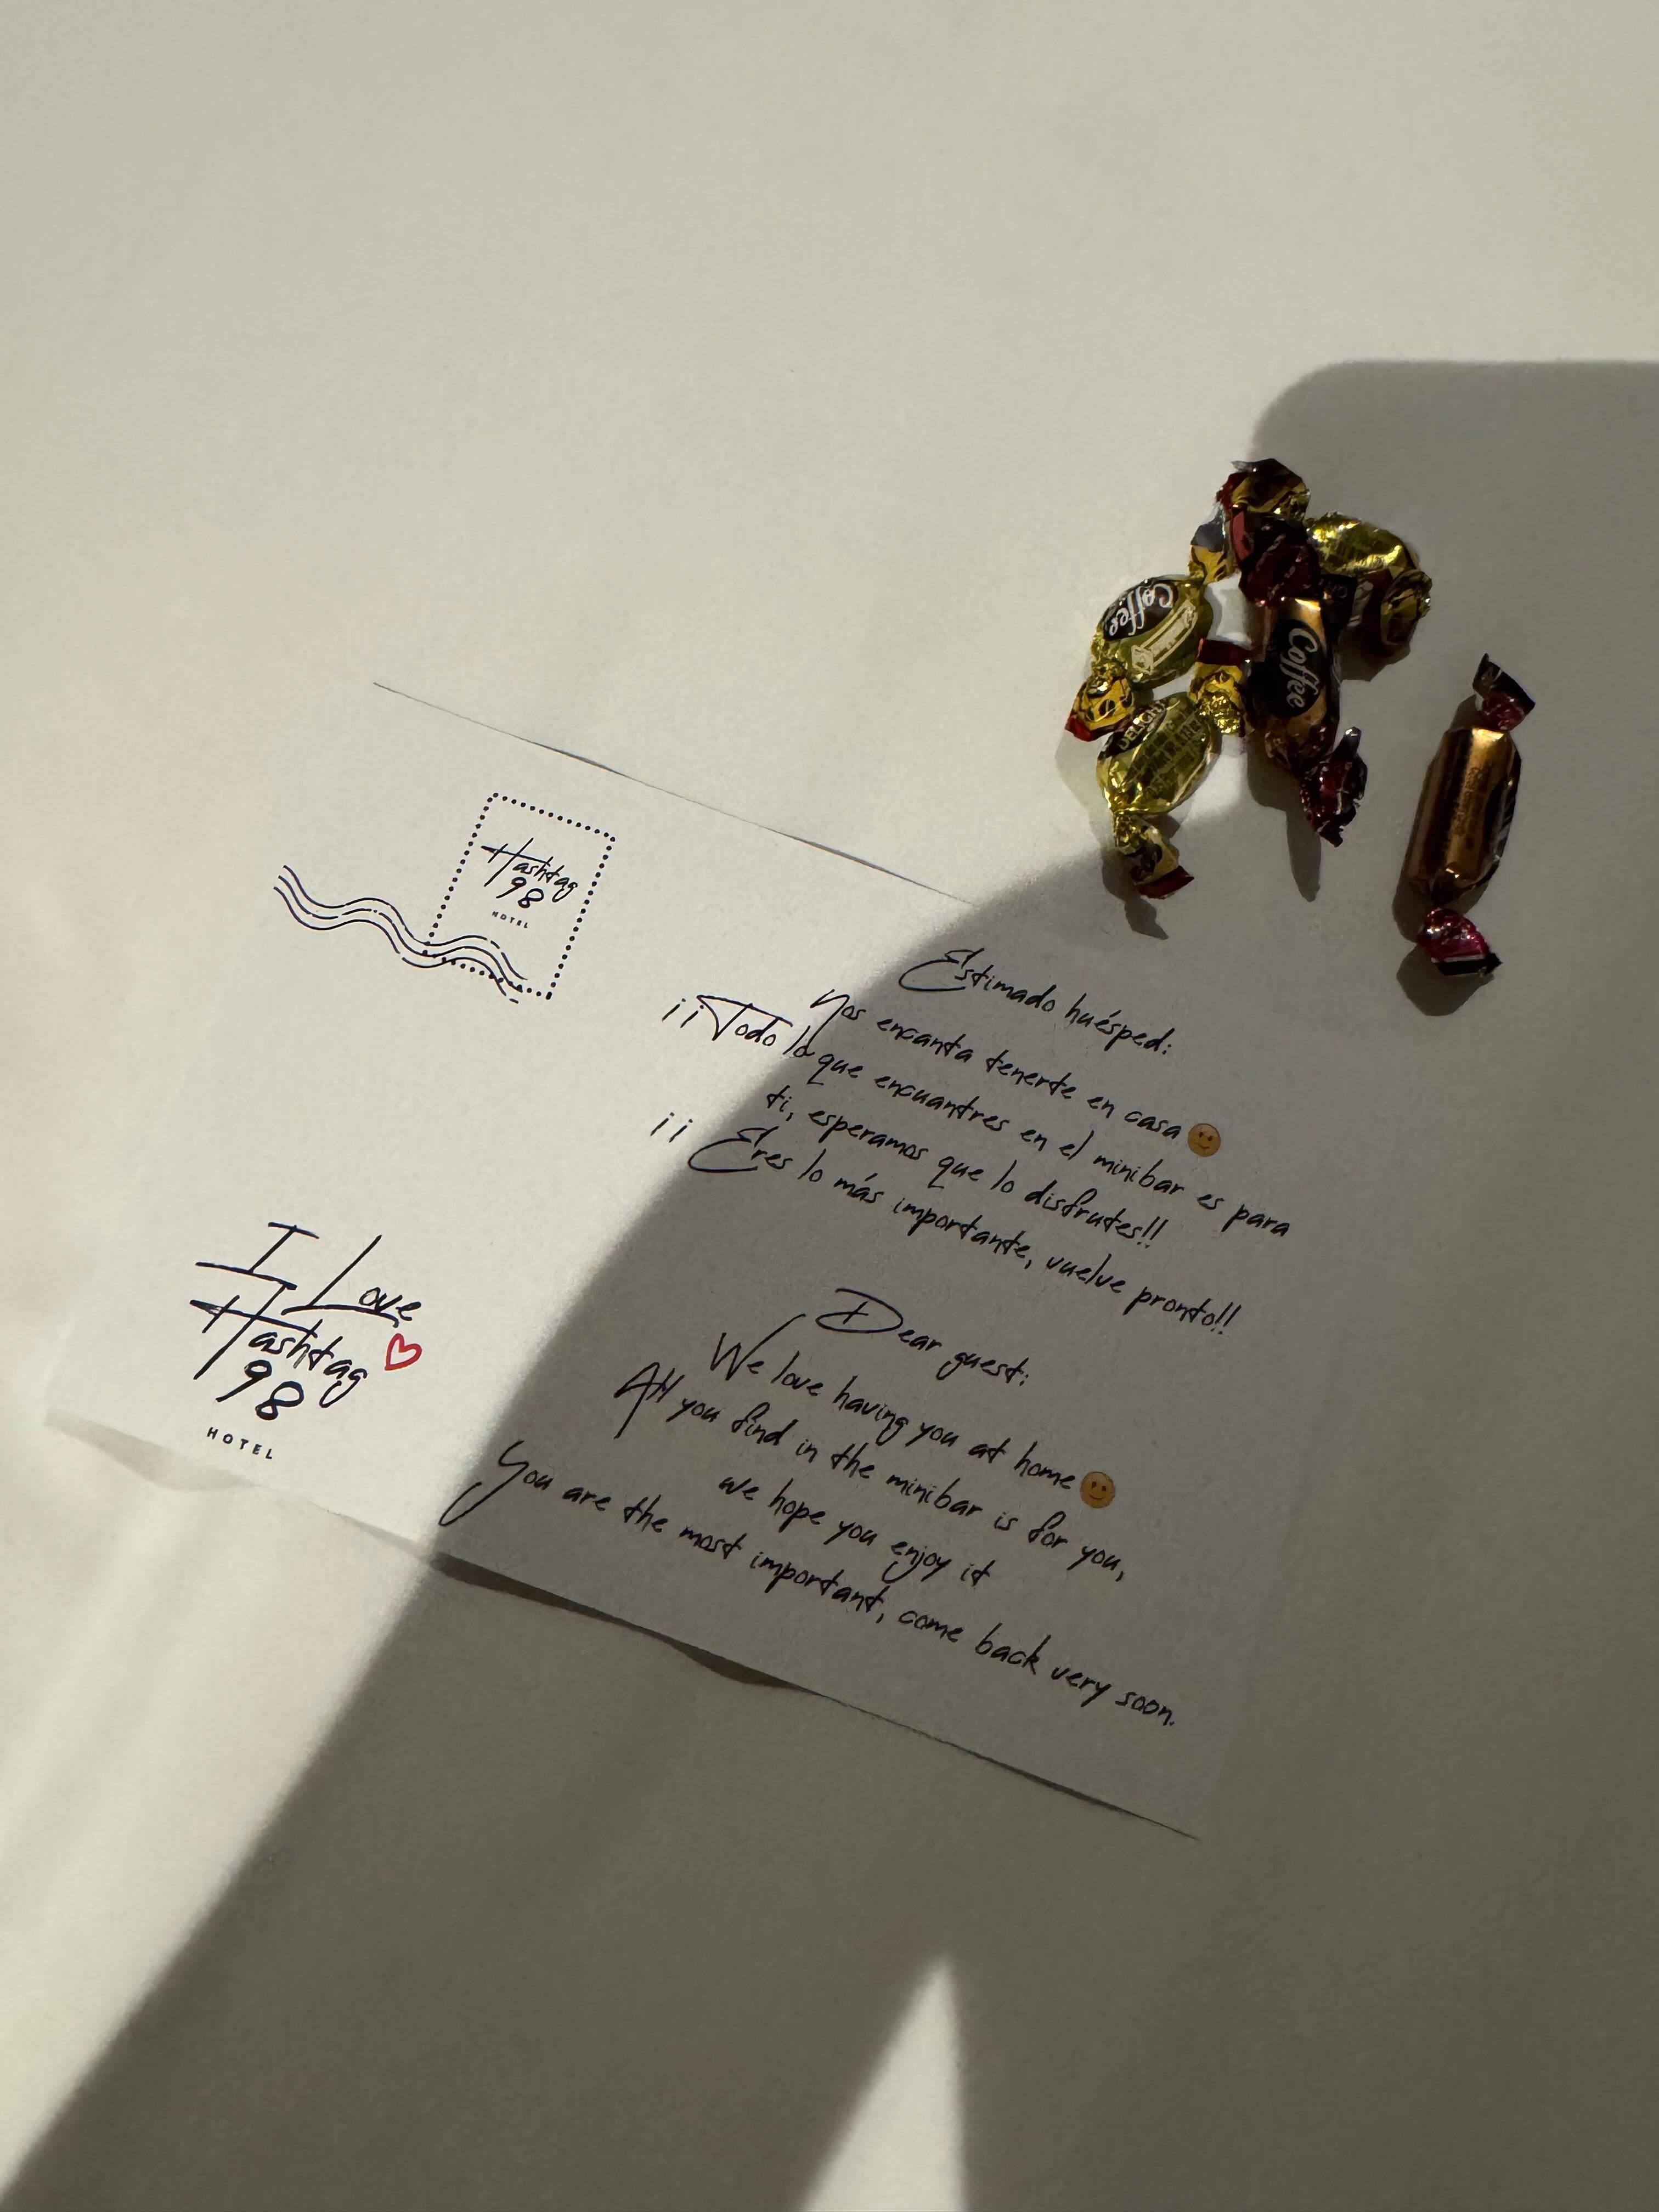 Hashtag
98
HOTEL
Estimado huésped:
Nos encanta tenerte en casa🙂
¡¡Todo lo que encuantres en el minibar es para
ti, esperamos que lo disfrutes!!
¡¡ Eres lo más importante, vuelve pronto!!
Dear guest:
We love having you at home🙂
All you find in the minibar is for you,
we hope you enjoy it
You are the most important, come back very soon.
I Love
Hashtag
98
HOTEL
Coffee
Coffee
DELIGHT